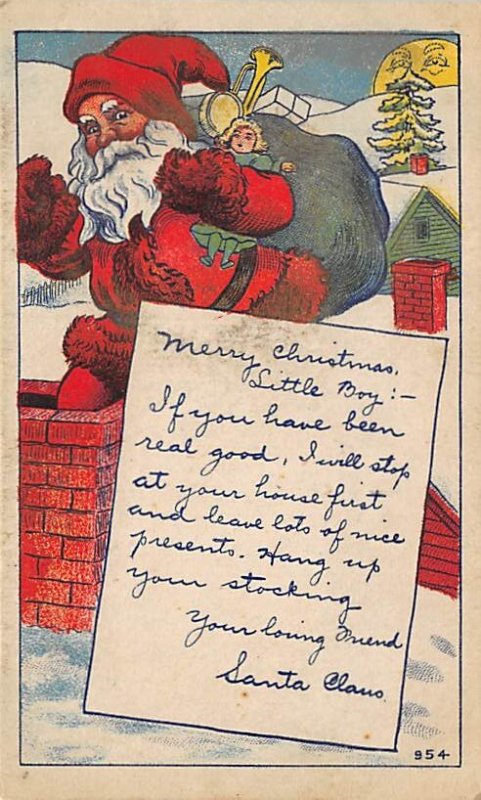 Merry Christmas,
Little Boy:-
If you have been
real good, I will stop
at your house first
and leave lots of nice
presents. Hang up
your stocking
Your loving Friend
Santa Claus.
954